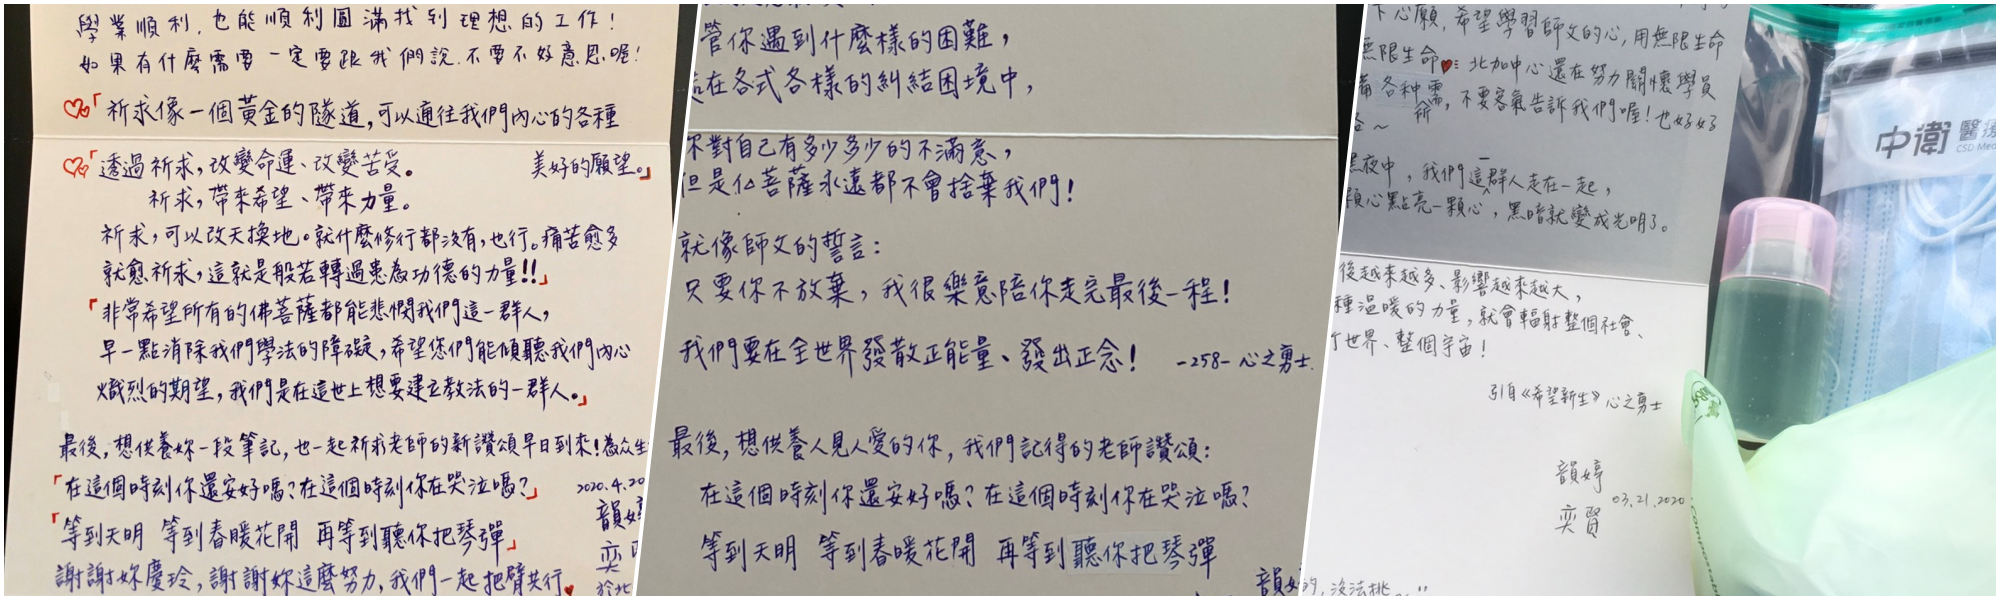 學業順利，也能順利圓滿找到理想的工作！
如果有什麼需要一定要跟我們說，不要不好意思喔！
「祈求像一個黃金的隧道，可以通往我們內心的各種
美好的願望。」
「透過祈求，改變命運、改變苦受。
祈求，帶來希望、帶來力量。
祈求，可以改天換地。就什麼修行都沒有，也行。痛苦愈多
就愈祈求，這就是般若轉過患為功德的力量!!」
「非常希望所有的佛菩薩都能悲憫我們這一群人，
早一點消除我們學法的障礙，希望您們能傾聽我們內心
熾烈的期望，我們是在這世上想要建立教法的一群人。」
最後，想供養妳一段筆記，也一起祈求老師的新讚頌早日到來！為众生
「在這個時刻你還安好嗎？在這個時刻你在哭泣嗎？」
「等到天明 等到春暖花開 再等到聽你把琴彈」
謝謝妳慶玲，謝謝妳這麼努力，我們一起把臂共行
2020.4.20
韻婷
奕
於北
管你遇到什麼樣的困難，
在各式各樣的糾結困境中，
你對自己有多少多少的不滿意，
但是仏菩薩永遠都不會捨棄我們！
就像師父的誓言：
只要你不放棄，我很樂意陪你走完最後一程！
我們要在全世界發散正能量、發出正念！ -258- 心之勇士
最後，想供養人見人愛的你，我們記得的老師讚頌：
在這個時刻你還安好嗎？在這個時刻你在哭泣嗎？
等到天明 等到春暖花開 再等到聽你把琴彈
韻
下心願，希望學習師父的心，用無限生命
無限生命 北加中心還在努力關懷學員
各种需
俞，不要客氣告訴我們喔！也好好
黑夜中，我們這一群人走在一起，
顆心點亮一顆心，黑暗就變成光明了。
後越來越多、影響越來越大，
種溫暖的力量，就會輻射整個社會、
世界、整個宇宙！
引自《希望新生》心之勇士
韻婷
奕賢
03.21.2020
的，沒法挑
中衛 醫療
CSD Med
Compostable